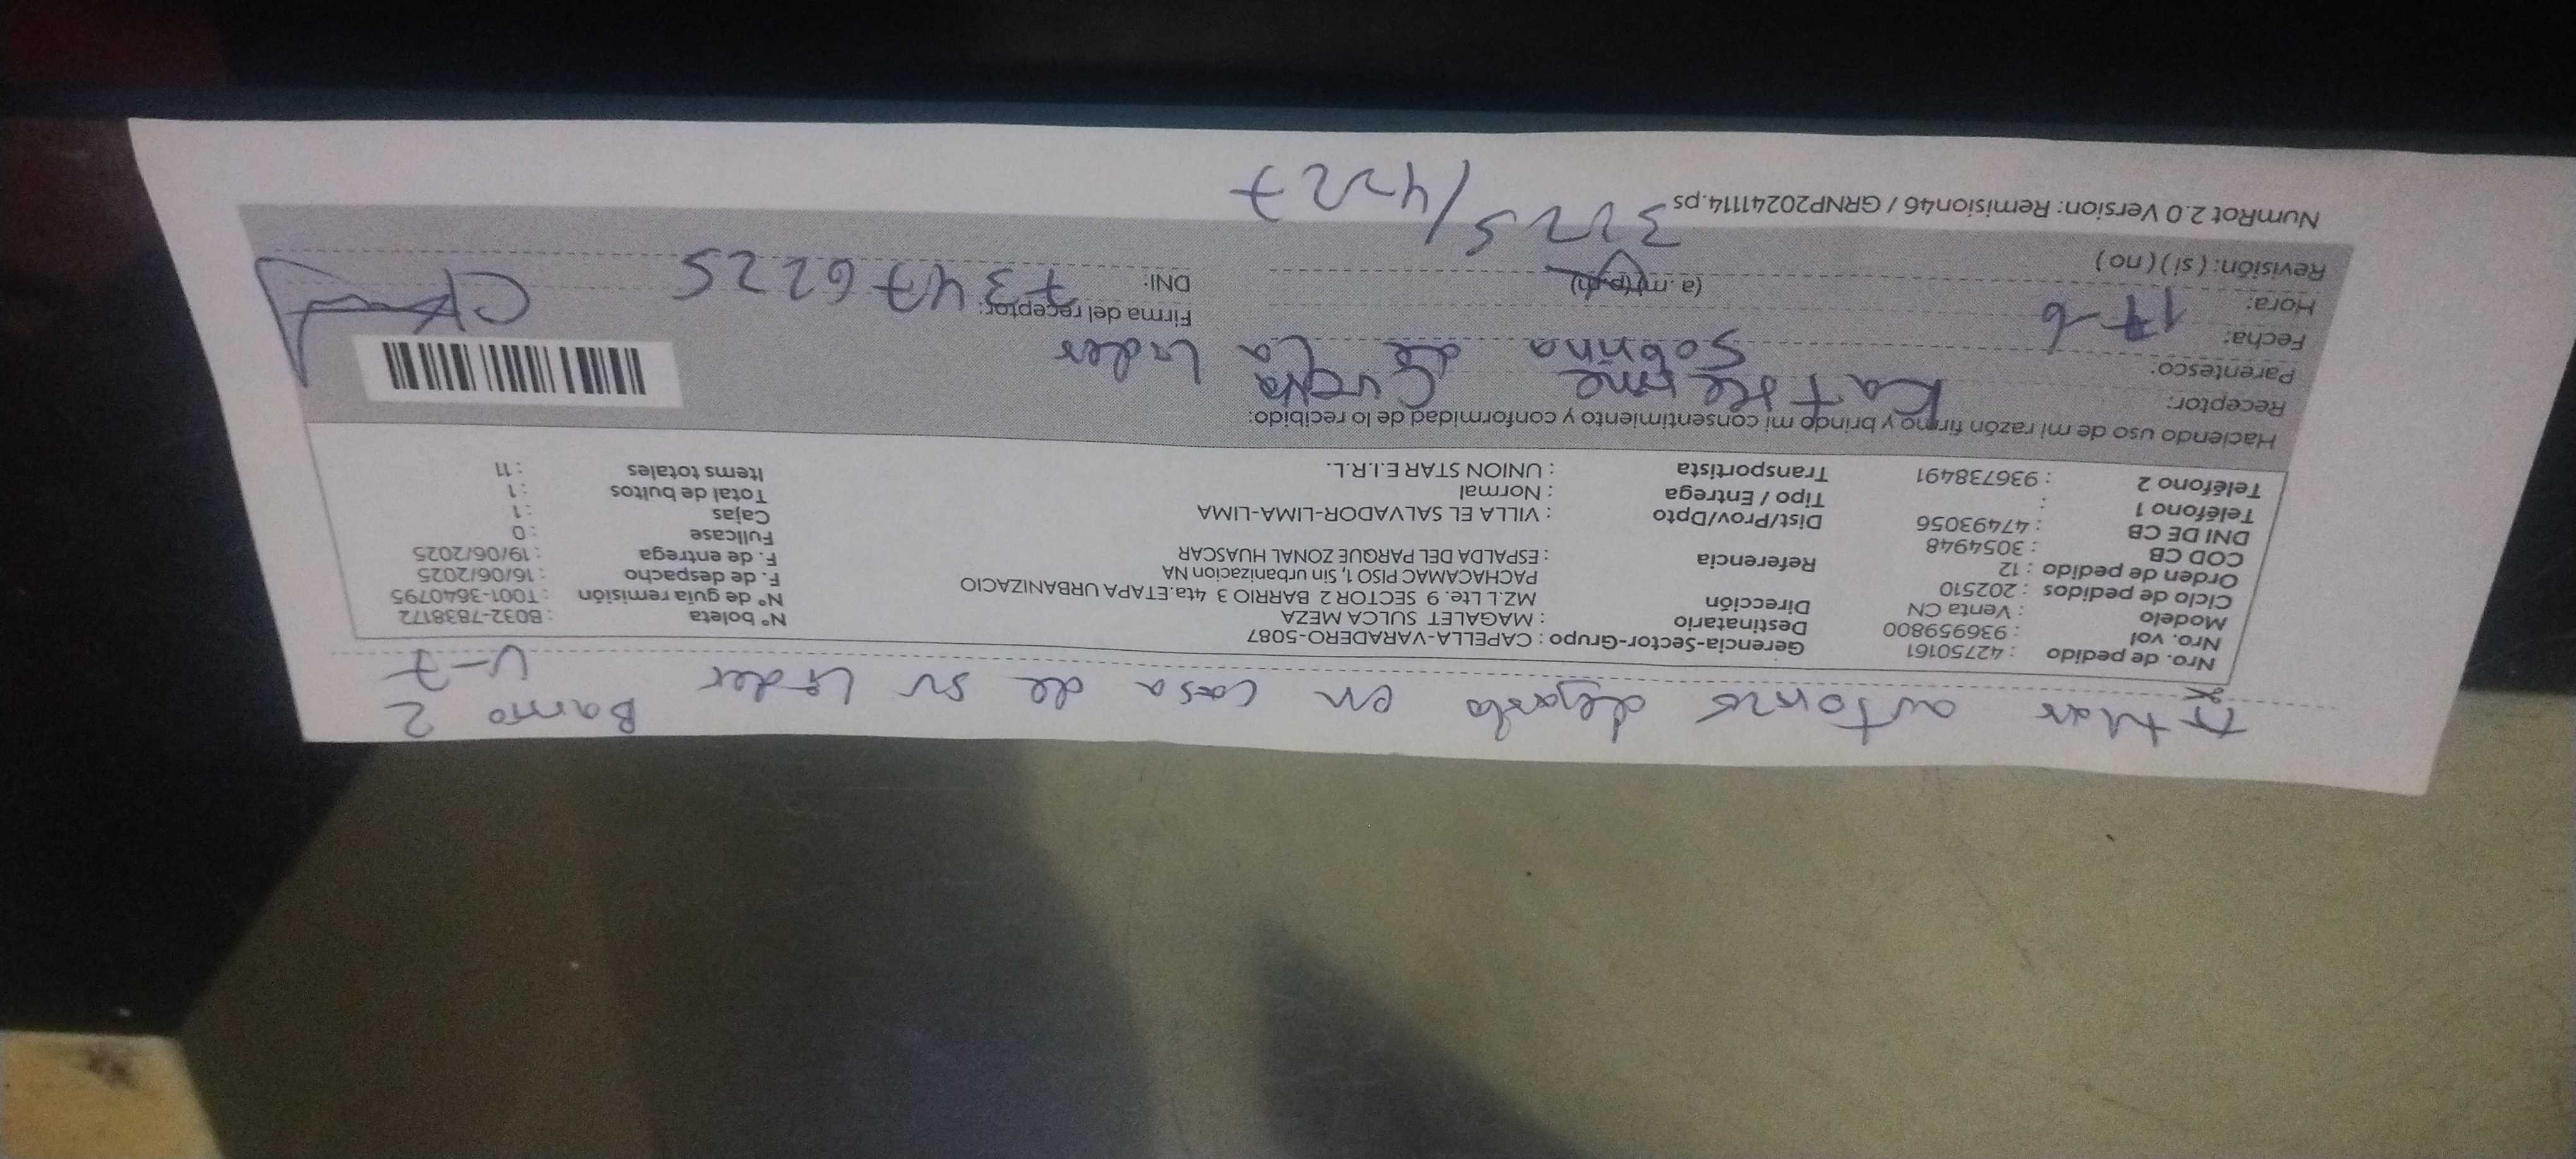 Titular autorizo dejarlo en casa de su Lider Barrio 2
U-7
Nro. de pedido : 42750161
Nro. vol : 936959800
Modelo : Venta CN
Ciclo de pedidos : 202510
Orden de pedido : 12
COD CB : 3054948
DNI DE CB : 47493056
Teléfono 1 :
Teléfono 2 : 936738491
Gerencia-Sector-Grupo : CAPELLA-VARADERO-5087
Destinatario : MAGALET SULCA MEZA
Dirección MZ.L Lte. 9 SECTOR 2 BARRIO 3 4ta.ETAPA URBANIZACIO
PACHACAMAC PISO 1, Sin urbanizacion NA
Referencia : ESPALDA DEL PARQUE ZONAL HUASCAR
Dist/Prov/Dpto : VILLA EL SALVADOR-LIMA-LIMA
Tipo / Entrega : Normal
Transportista : UNION STAR E.I.R.L.
N° boleta : B032-7838172
N° de guía remisión : T001-3640795
F. de despacho : 16/06/2025
F. de entrega : 19/06/2025
Fullcase : 0
Cajas : 1
Total de bultos : 1
Items totales : 11
Haciendo uso de mi razón firmo y brindo mi consentimiento y conformidad de lo recibido:
Receptor: Katherine Cueva
Parentesco: Sobrina de la Lider
Fecha: 17-6
Hora: (a. m) (p. m)
Revisión: ( si ) ( no )
Firma del receptor:
DNI: 73476225
3225/4227
NumRot 2.0 Version: Remision46 / GRNP20241114.ps